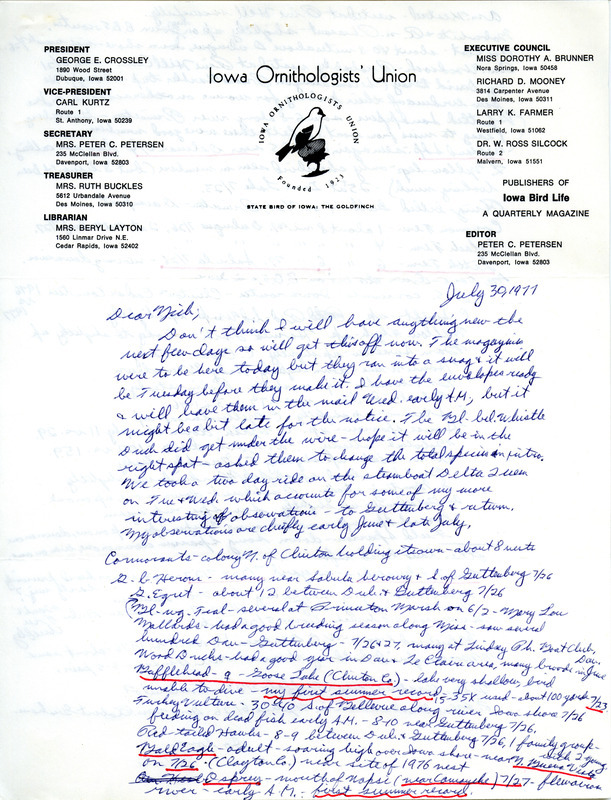 PRESIDENT
GEORGE E. CROSSLEY
1890 Wood Street
Dubuque, Iowa 52001
VICE-PRESIDENT
CARL KURTZ
Route 1
St. Anthony, Iowa 50239
SECRETARY
MRS. PETER C. PETERSEN
235 McClellan Blvd.
Davenport, Iowa 52803
TREASURER
MRS. RUTH BUCKLES
5612 Urbandale Avenue
Des Moines, Iowa 50310
LIBRARIAN
MRS. BERYL LAYTON
1560 Linmar Drive N.E.
Cedar Rapids, Iowa 52402
Iowa Ornithologists' Union
IOWA ORNITHOLOGISTS UNION
Founded 1923
STATE BIRD OF IOWA: THE GOLDFINCH
EXECUTIVE COUNCIL
MISS DOROTHY A. BRUNNER
Nora Springs, Iowa 50458
RICHARD D. MOONEY
3814 Carpenter Avenue
Des Moines, Iowa 50311
LARRY K. FARMER
Route 1
Westfield, Iowa 51062
DR. W. ROSS SILCOCK
Route 2
Malvern, Iowa 51551
PUBLISHERS OF
Iowa Bird Life
A QUARTERLY MAGAZINE
EDITOR
PETER C. PETERSEN
235 McClellan Blvd.
Davenport, Iowa 52803
July 30, 1977
Dear Nick,
Don't think I will have anything new the
next few days so will get this off now. The magazines
were to be here today but they ran into a snag & it will
be Tuesday before they make it. I have the envelopes ready
& will have them in the mail Wed. early A.M., but it
might be a bit late for the notice. The Bl-bel. Whistle
Duck did get under the wire - hope it will be in the
right spot - asked them to change the total species in intro.
We took a two day ride on the steamboat Delta Queen
on Tue & Wed. which accounts for some of my more
interesting observations - to Guttenberg & return.
My observations are chiefly early June & late July.
Cormorants - colony N. of Clinton holding its own - about 8 nests
G. b Herons - many near Sabula & S. of Guttenberg 7/26
G. Egret - about 12 between Dub. & Guttenberg 7/26
Bl-wg. Teal - several at Princeton Marsh on 6/2 - Mary Lou
Mallards - had a good breeding season along Miss - saw several
hundred Dav - Guttenberg - 7/26 & 27, many at Lindsay Pk. Boat Club, Dav.
Wood Ducks - had a good year in Dav & Le Claire area, many broods in June
Bufflehead - ♀ - Goose Lake (Clinton Co.) - lake very shallow, bird
unable to dive - my first summer record - 15-35X used - about 100 yards 7/23
Turkey Vulture - 30-40 S of Bellevue along river Iowa shore 7/26
feeding on dead fish early A.M. - 8-10 near Guttenberg 7/26,
Red-tailed Hawks - 8-9 between Dub & Guttenberg 7/26, 1 family group - with 2 young
Bald Eagle - adult - soaring high over Iowa shore - near N. Buena Vista
on 7/26 (Clayton Co.) near site of 1976 nest
Osprey - mouth of Wapsi (near Comanche) 7/27 - flew over
river - early A.M. - first summer record.